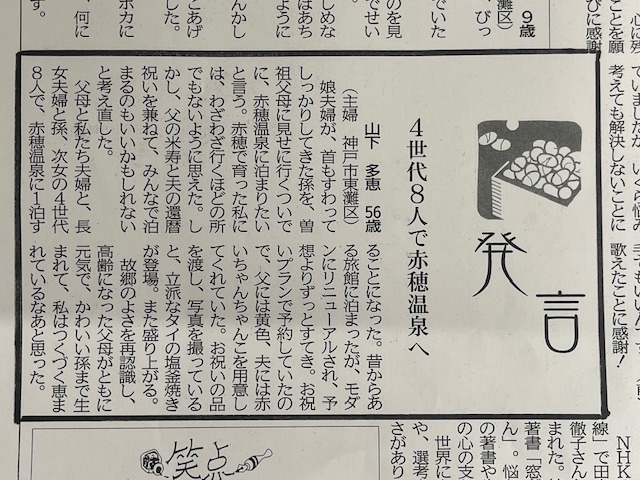 心に残
ことを願
びに感謝
考えても解決しないことに
歌えたことに感謝！
9歳
灘区）
、びっ
でいた
のを見
でせい
しめな
はあち
ように
んかし
こあげ
した。
ボカに
、何に
す。
発言
4世代8人で赤穂温泉へ
山下　多恵　56歳
（主婦　神戸市東灘区）
娘夫婦が、首もすわって
しっかりしてきた孫を、曽
祖父母に見せに行くついで
に、赤穂温泉に泊まりたい
と言う。赤穂で育った私に
は、わざわざ行くほどの所
でもないように思えた。し
かし、父の米寿と夫の還暦
祝いを兼ねて、みんなで泊
まるのもいいかもしれない
と考え直した。
父母と私たち夫婦と、長
女夫婦と孫、次女の4世代
8人で、赤穂温泉に1泊す
ることになった。昔からあ
る旅館に泊まったが、モダ
ンにリニューアルされ、予
想よりずっとすてき。お祝
いプランで予約していたの
で、父には黄色、夫には赤
いちゃんちゃんこを用意し
てくれていた。お祝いの品
を渡し、写真を撮っている
と、立派なタイの塩釜焼き
が登場。また盛り上がる。
故郷のよさを再認識し、
高齢になった父母がともに
元気で、かわいい孫まで生
まれて、私はつくづく恵ま
れているなあと思った。
NHK
線」で田
徹子さん
まれた。
著書「窓
ん」。悩
の著書や
の心の支
世界に
や、選考
さがあり
笑点